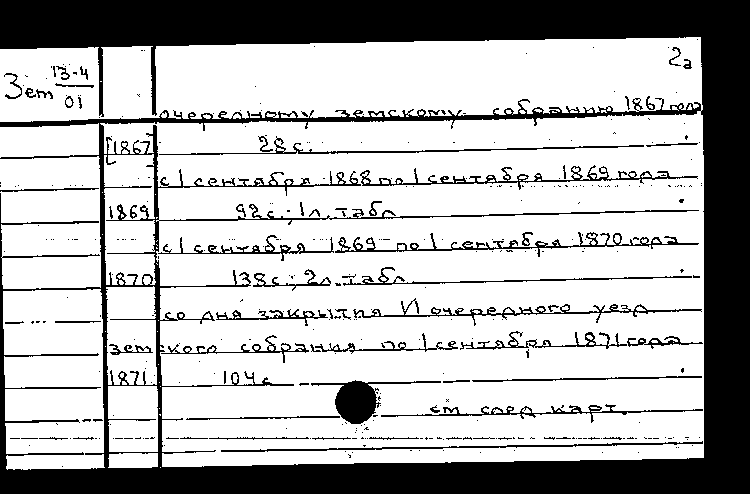 2а
Зет 13-4
01
очередному земскому собранию 1867 года
[1867] 28 с.
с 1 сентября 1868 по 1 сентября 1869 года
1869 92 с.; 1 л. табл
с 1 сентября 1869 по 1 сентября 1870 года
1870 138 с.; 2 л. табл
со дня закрытия VI очередного уезд
земского собрания по 1 сентября 1871 года
1871 104 с
см след карт.